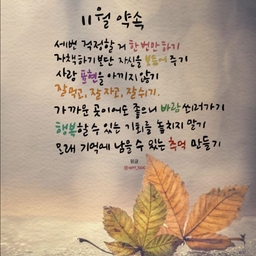 11월 약속
세번 걱정할 거 한 번만 하기
자책하기보단 자신을 보듬어 주기
사랑 표현을 아끼지 않기
잘 먹고, 잘 자고, 잘 쉬기.
가까운 곳이어도 좋으니 바람 쐬러가기
행복할 수 있는 기회를 놓치지 말기
오래 기억에 남을 수 있는 추억 만들기